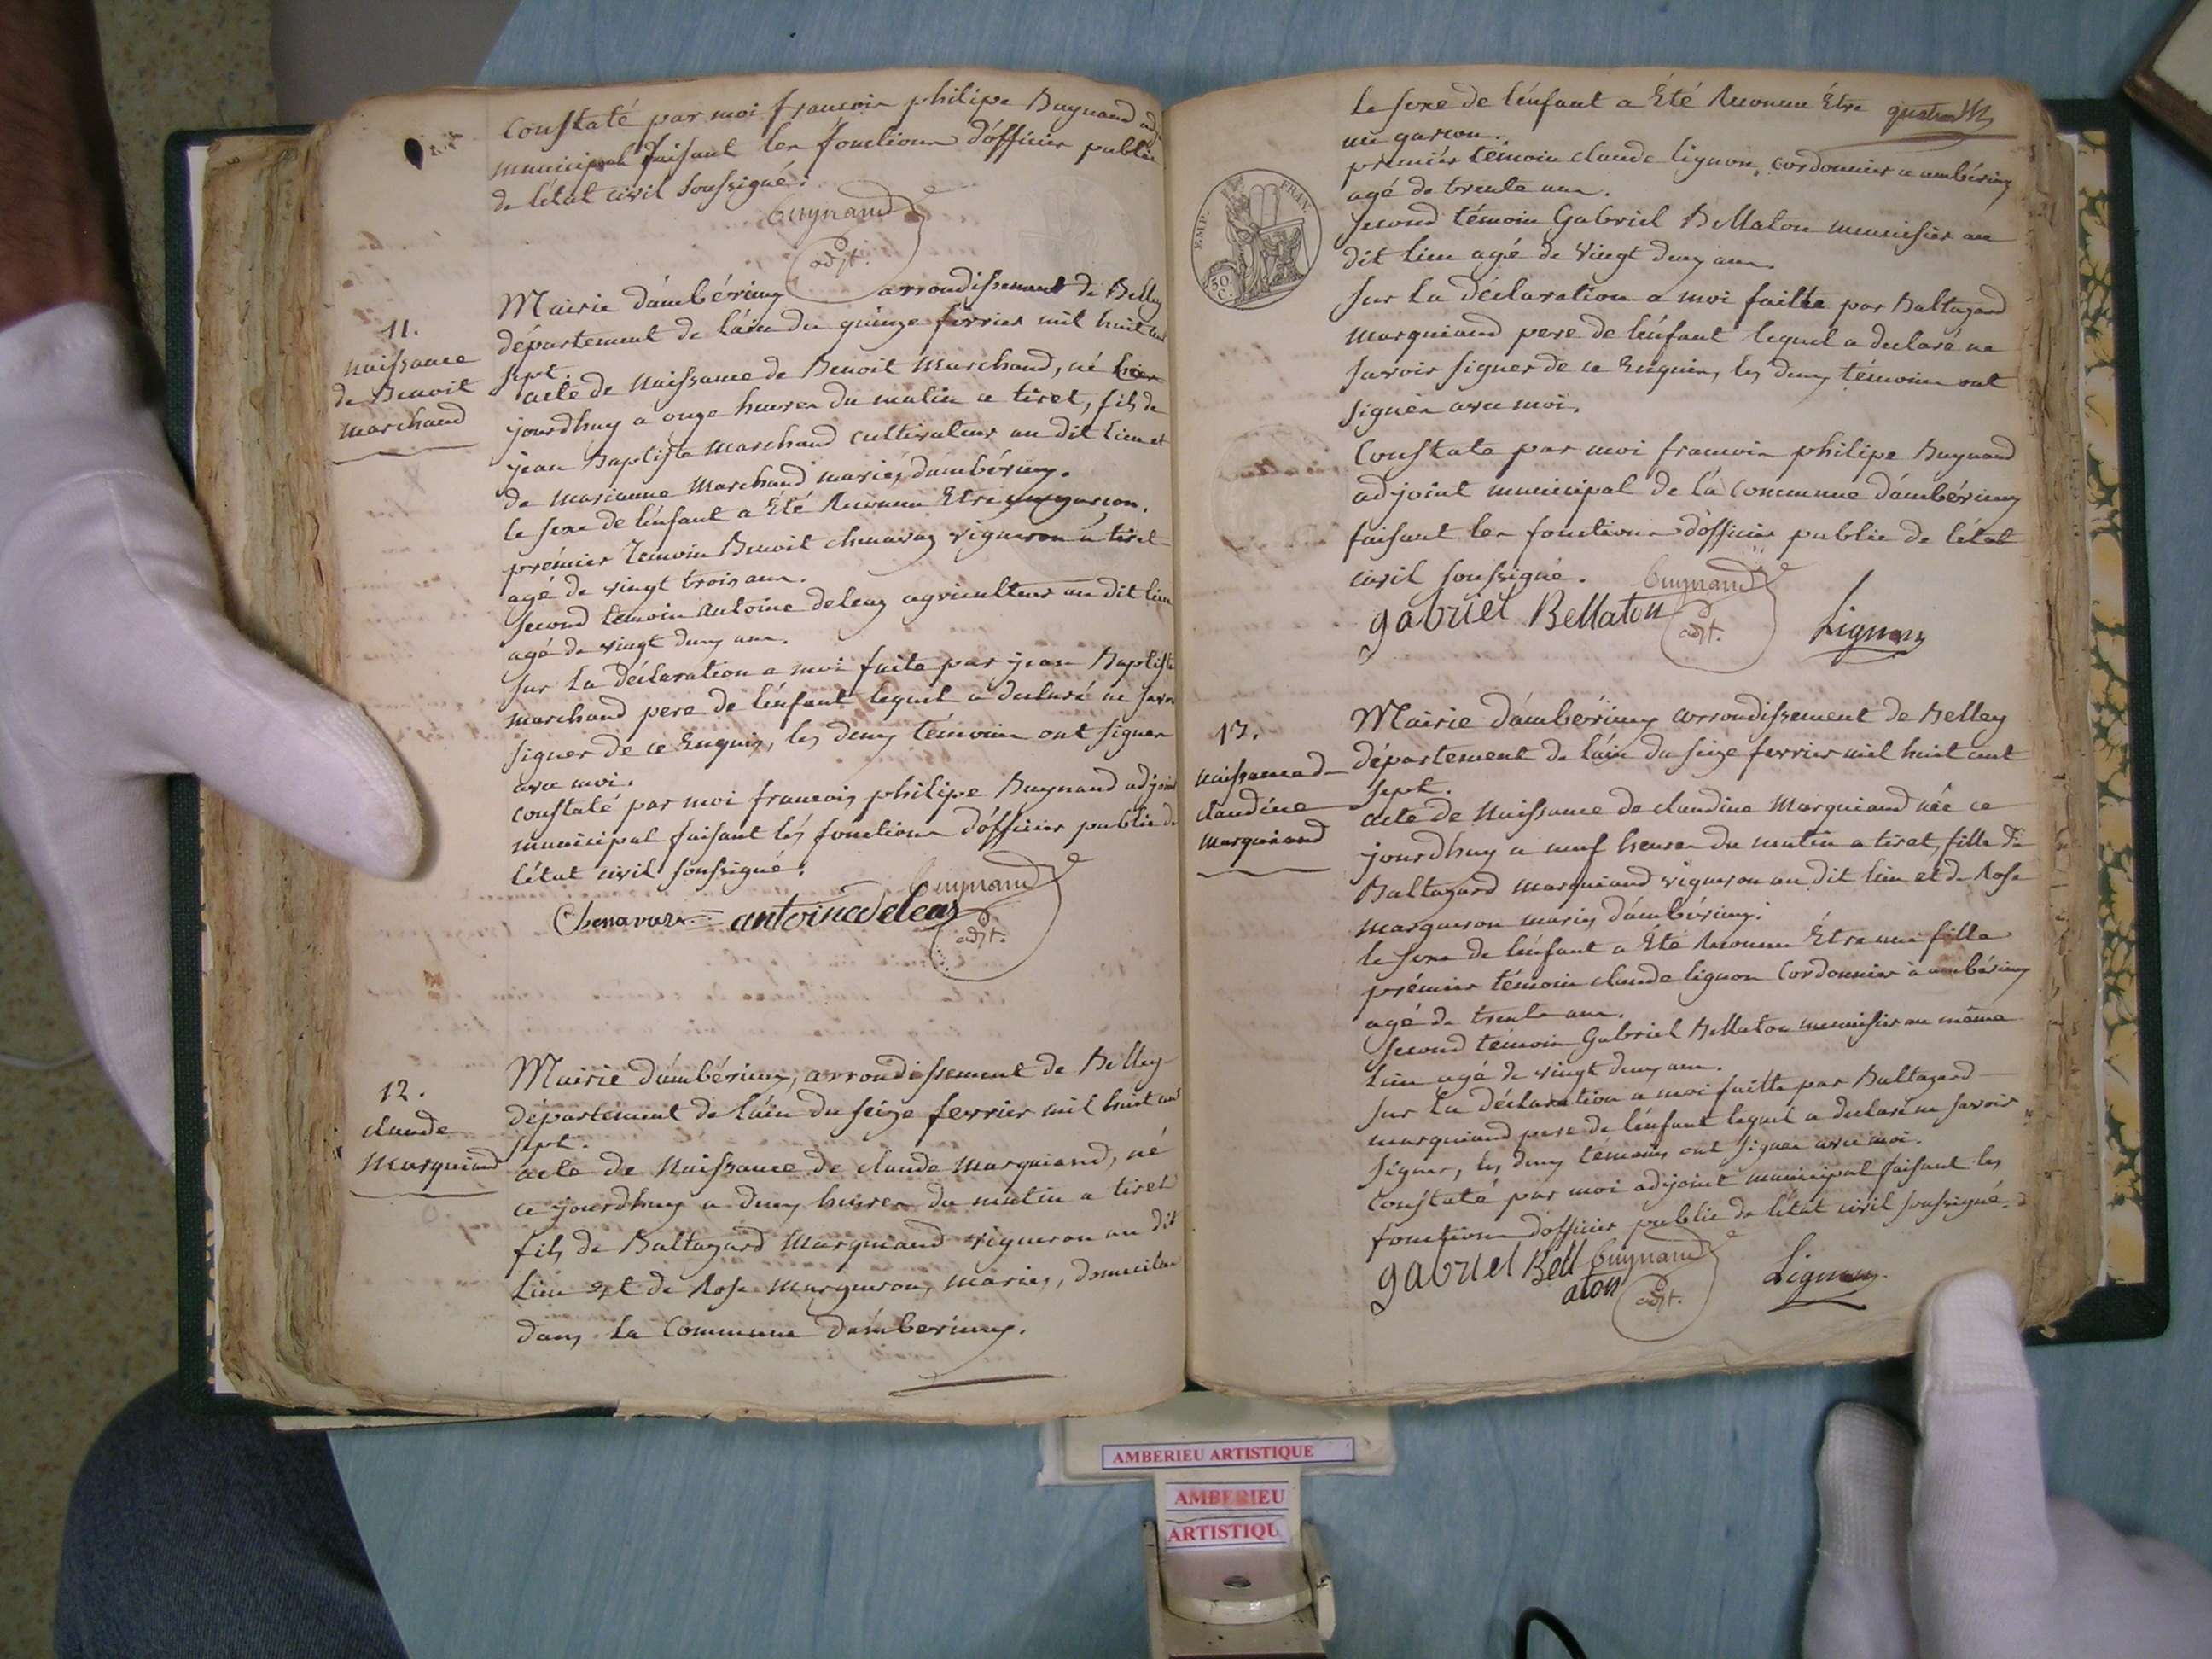 Constaté par moi francois philipe Buynand adj
municipal faisant les fonctions d'officier public
de l'état civil soussigné.
Buynand
adjt.
11.
naissance
de Benoit
marchand
Mairie d'ambérieux arrondissement de Belley
département de l'ain du quinze fevrier mil huit cent
sept.
acte de naissance de Benoit Marchand, né
jourdhuy a onze heures du matin a tiret, fils de
jean Baptiste marchand cultivateur au dit lieu et
de marianne Marchand mariés d'ambérieux.
le sexe de l'enfant a Eté Reconnu Etre un garçon.
prémier Temoin Benoit chenavaz vigneron a tiret
agé de vingt trois ans.
second temoin antoine deleaz agriculteur au dit lieu
agé de vingt deux ans.
sur La déclaration a moi faite par jean Baptiste
marchand pere de l'enfant lequel a declaré ne savoir
signer de ce Enquis, les deux témoins ont signer
avec moi.
constaté par moi francois philipe Buynand adjoint
municipal faisant les fonctions d'officier public de
l'état civil soussigné.
Buynand
Chenavaz antoine deleaz
adjt.
12.
claude
Marquiand
Mairie d'ambérieux, arrondissement de Belley
département de l'ain du seize fevrier mil huit cent
sept.
acte de Naissance de claude Marquiand, né
ce jourdhuy a deux heures du matin a tiret
fils de Baltazard Marquiand vigneron au dit
Lieu et de Rose Margueron, mariés, domicilés
dans La Commune d'amberieux.
Le sexe de l'enfant a Eté Reconnu Etre
un garcon.
premier témoin claude lignon, cordonnier a ambérieux
agé de trente ans.
second témoin Gabriel Bellaton menuisier au
dit lieu agé de vingt deux ans.
EMP. FRAN.
50 C.
sur La déclaration a moi faitte par Baltazard
Marquiand pere de l'enfant lequel a declaré ne
savoir signer de ce Enquis, les deux témoins ont
signer avec moi.
Constaté par moi francois philipe Buynand
adjoint municipal de la commune d'ambérieux
faisant les fonctions d'officier public de l'état
civil soussigné.
Buynand
gabriel Bellaton
adjt.
Lignon
13.
naissance de
claudine
marquiand
Mairie d'ambérieux arrondissement de Belley
département de l'ain du seize fevrier mil huit cent
sept.
acte de Naissance de claudine Marquiand née ce
jourdhuy a neuf heures du matin a tiret, fille de
Baltazard marquiand vigneron au dit lieu et de Rose
Margueron mariés d'ambérieux.
le sexe de l'enfant a Eté Reconnu Etre une fille
prémier témoin claude lignon Cordonnier à ambérieux
agé de trente ans.
second témoin Gabriel Bellaton menuisier au même
Lieu agé de vingt deux ans.
sur La déclaration a moi faitte par Baltazard
marquiand pere de l'enfant lequel a declaré ne savoir
signer, les deux témoins ont signer avec moi.
Constaté par moi adjoint municipal faisant les
fonctions d'officier public de l'état civil soussigné.
gabriel Bell
aton
Buynand
adjt.
Lignon
AMBERIEU ARTISTIQUE
AMBERIEU
ARTISTIQU